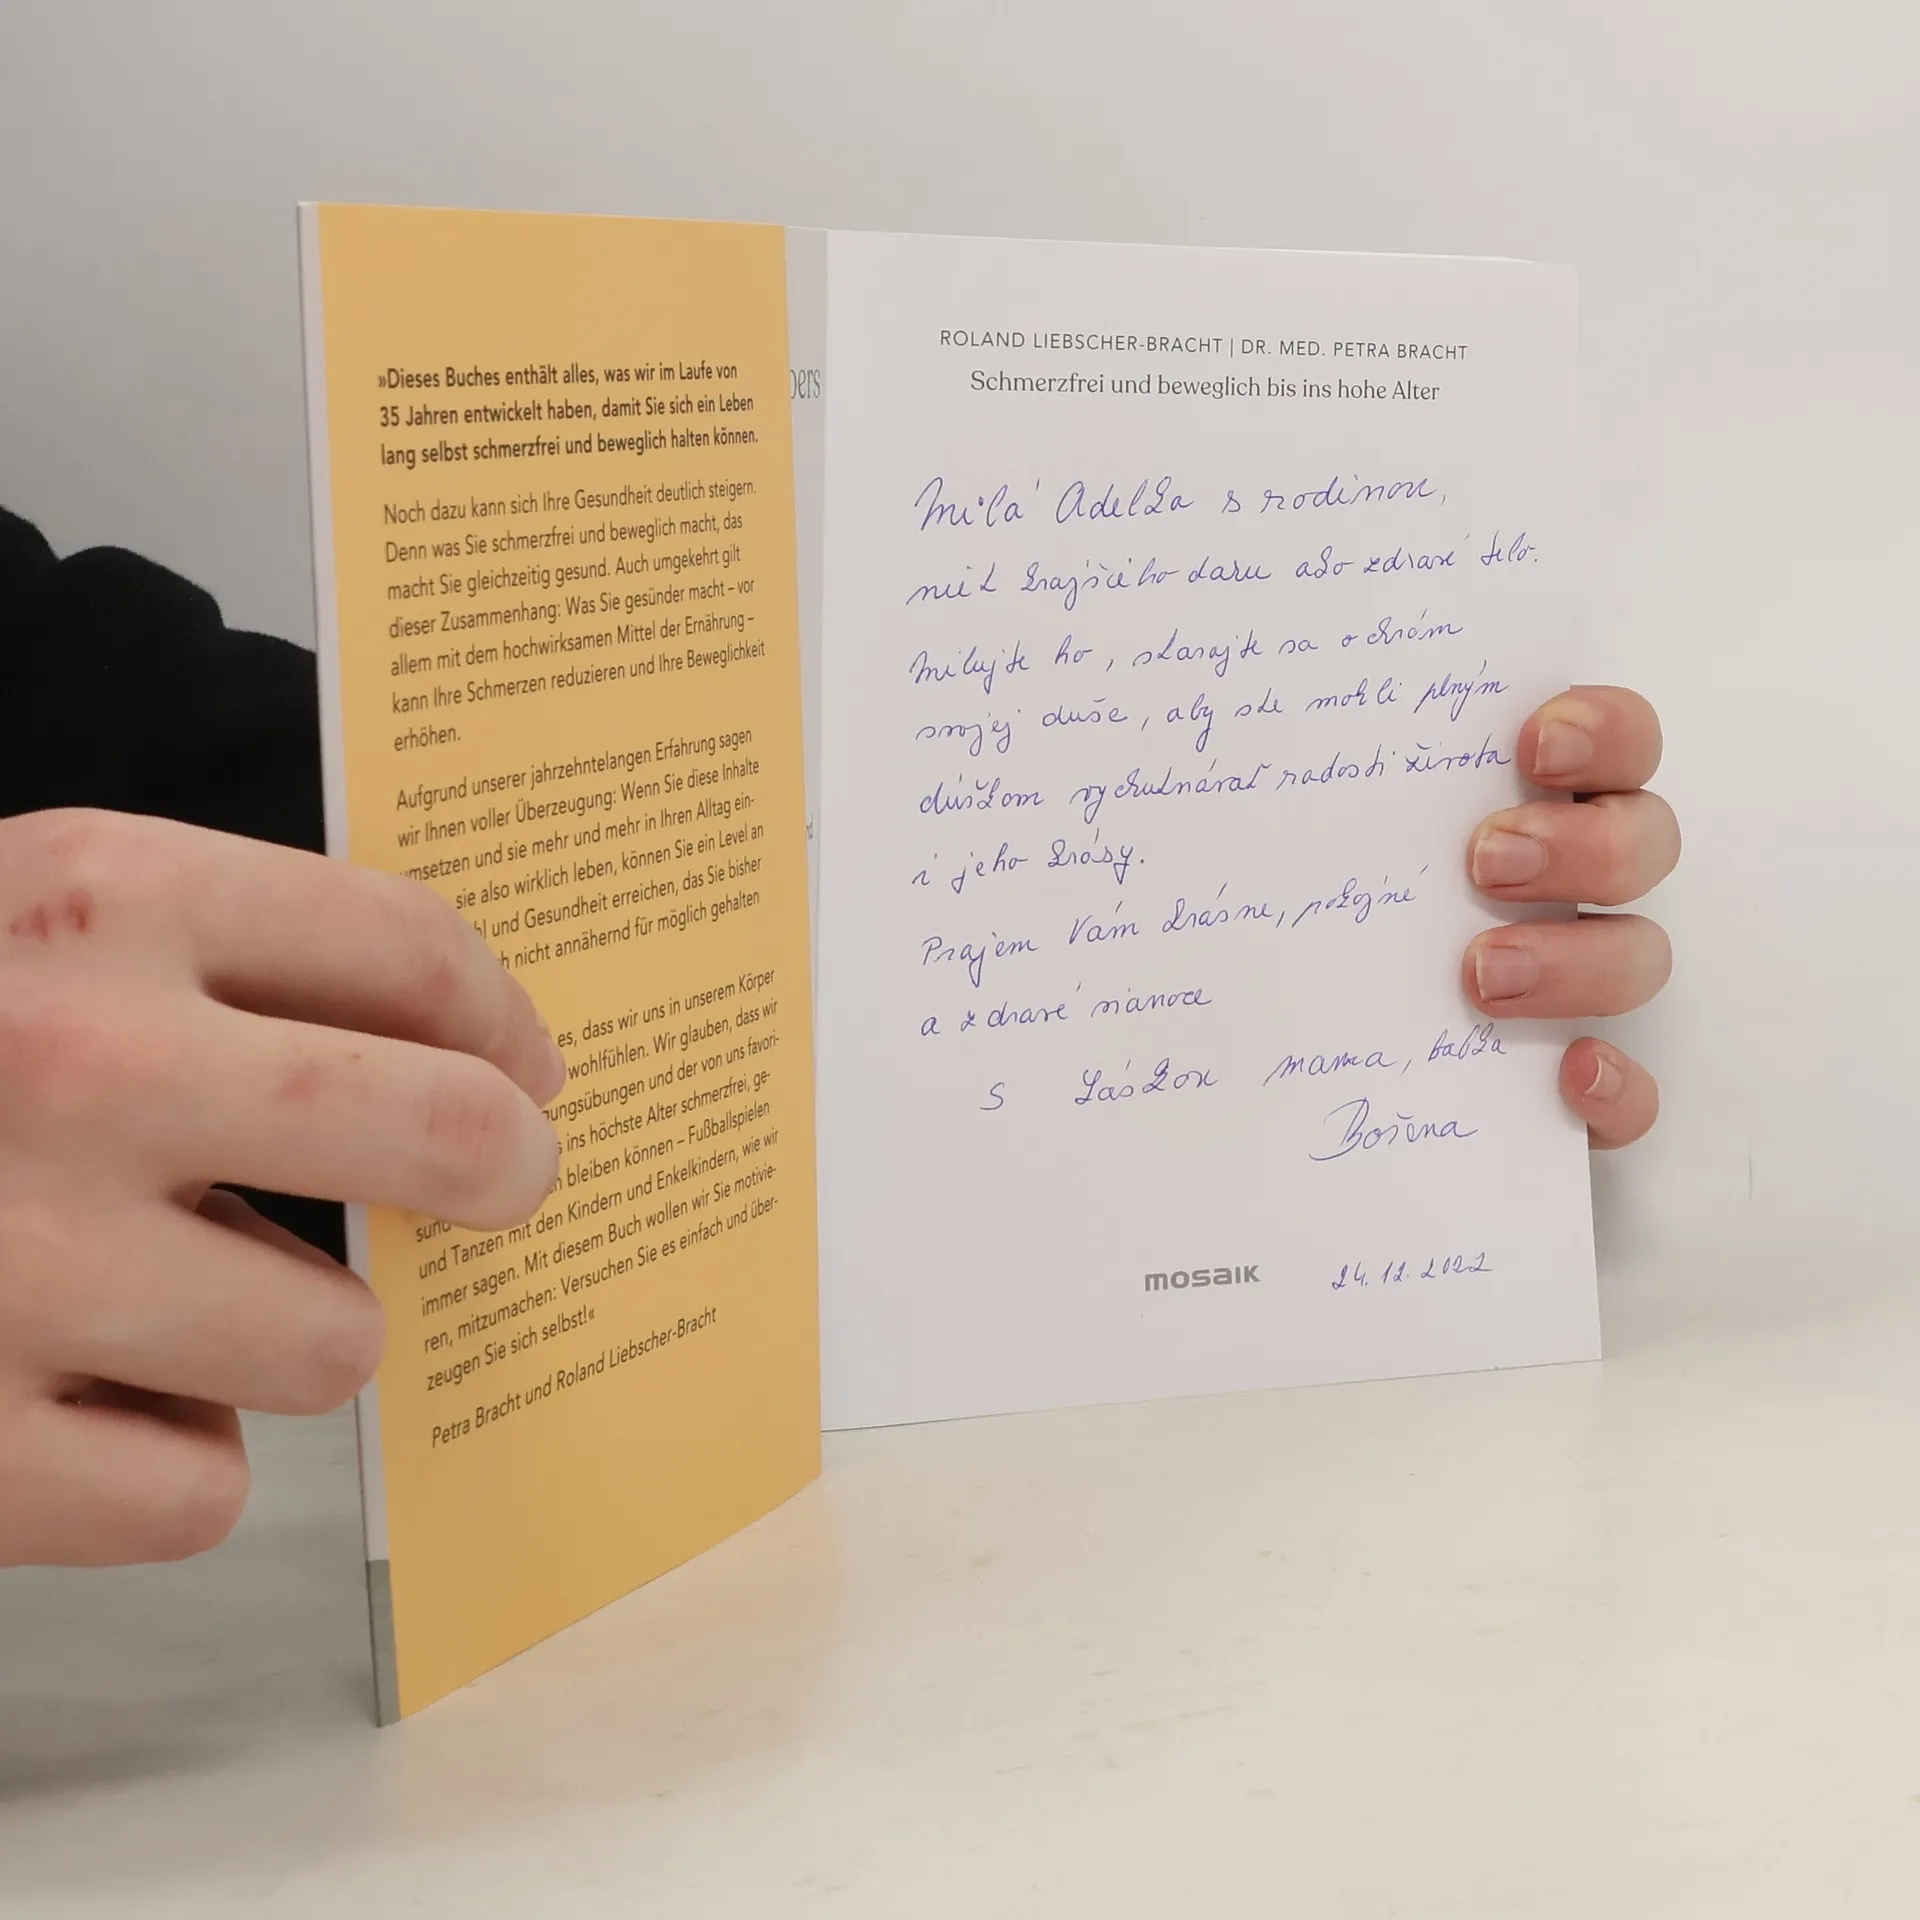 »Dieses Buches enthält alles, was wir im Laufe von
35 Jahren entwickelt haben, damit Sie sich ein Leben
lang selbst schmerzfrei und beweglich halten können.
Noch dazu kann sich Ihre Gesundheit deutlich steigern.
Denn was Sie schmerzfrei und beweglich macht, das
macht Sie gleichzeitig gesund. Auch umgekehrt gilt
dieser Zusammenhang: Was Sie gesünder macht – vor
allem mit dem hochwirksamen Mittel der Ernährung –
kann Ihre Schmerzen reduzieren und Ihre Beweglichkeit
erhöhen.
Aufgrund unserer jahrzehntelangen Erfahrung sagen
wir Ihnen voller Überzeugung: Wenn Sie diese Inhalte
umsetzen und sie mehr und mehr in Ihren Alltag ein-
sie also wirklich leben, können Sie ein Level an
und Gesundheit erreichen, das Sie bisher
nicht annähernd für möglich gehalten
es, dass wir uns in unserem Körper
wohlfühlen. Wir glauben, dass wir
ungsübungen und der von uns favori-
ins höchste Alter schmerzfrei, ge-
bleiben können – Fußballspielen
und Tanzen mit den Kindern und Enkelkindern, wie wir
immer sagen. Mit diesem Buch wollen wir Sie motivie-
ren, mitzumachen: Versuchen Sie es einfach und über-
zeugen Sie sich selbst!«
Petra Bracht und Roland Liebscher-Bracht
pers
ROLAND LIEBSCHER-BRACHT | DR. MED. PETRA BRACHT
Schmerzfrei und beweglich bis ins hohe Alter
Milá Adelka s rodinou,
niet krajšieho daru ako zdravé telo.
Milujte ho, starajte sa o chrám
svojej duše, aby ste mohli plným
dúškom vychutnávať radosti života
i jeho krásy.
Prajem Vám krásne, pokojné
a zdravé vianoce
S láskou mama, babka
Božena
mosaik
24. 12. 2022